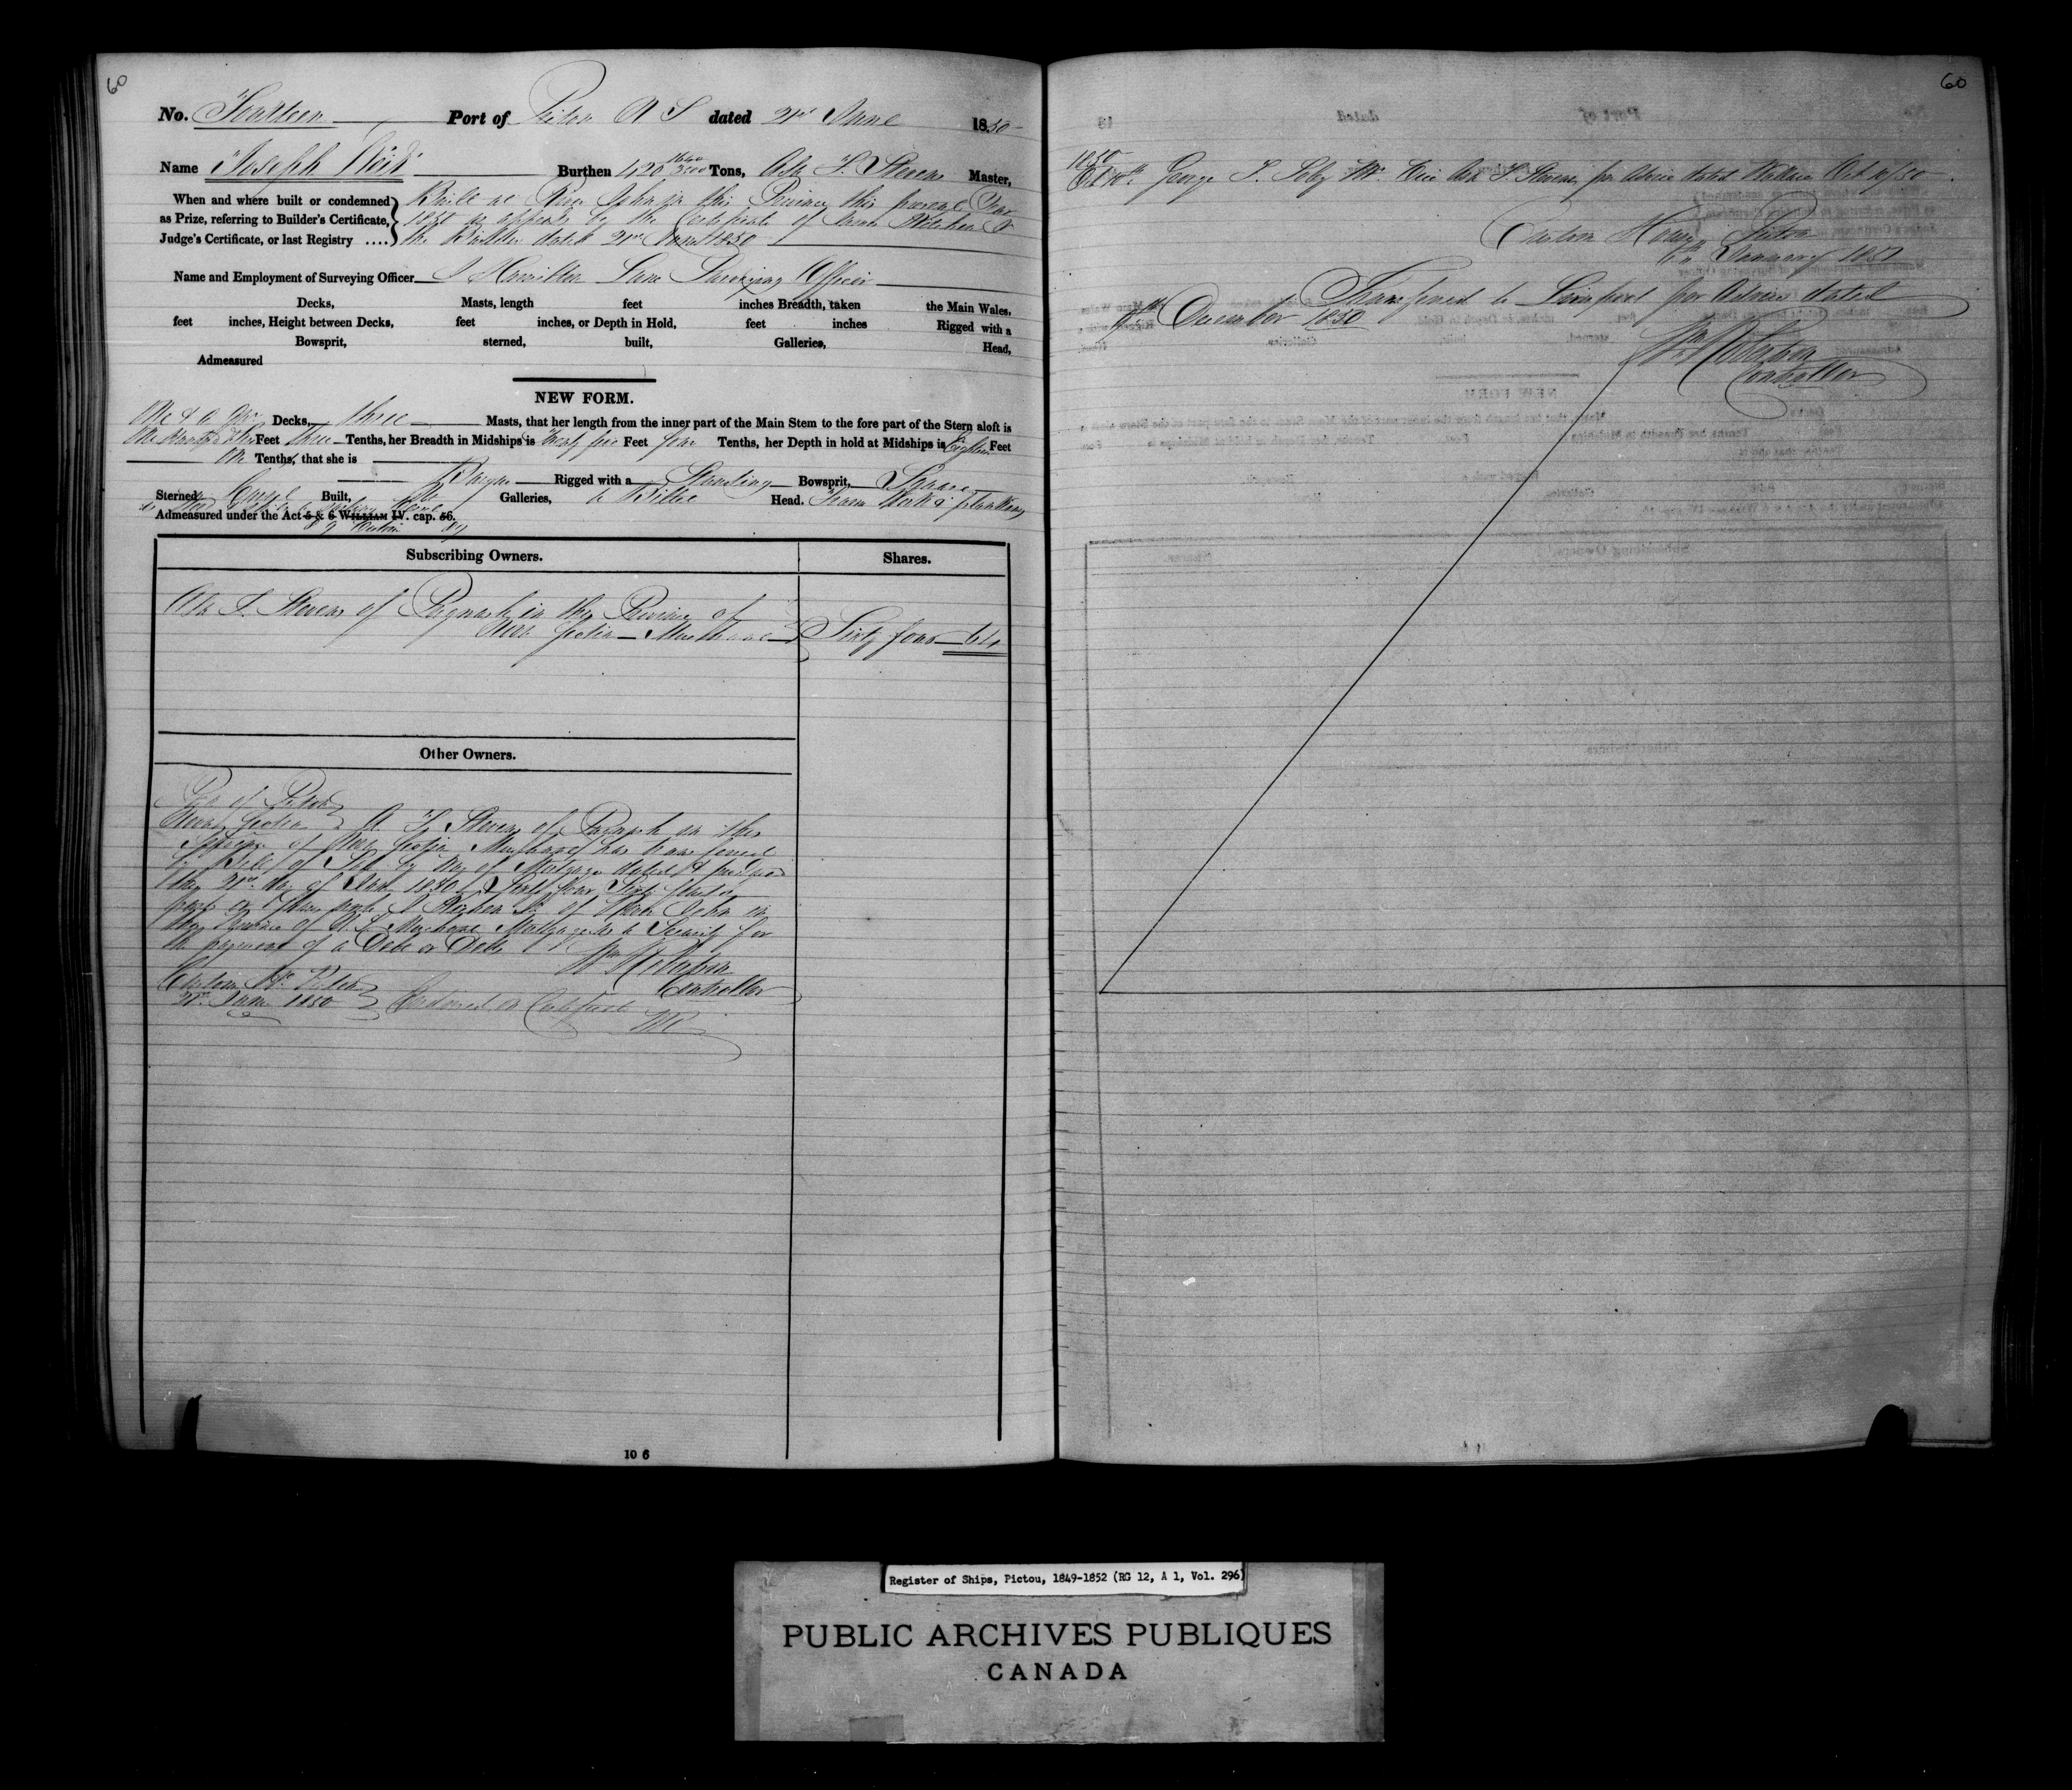 60
No. Fourteen Port of Pictou N S dated 21st June 1850
Name "Joseph " Burthen 420 Tons, Asa F. Stevens Master,
When and where built or condemned Built at River John in this Province this present Year
as Prize, referring to Builder's Certificate, 1850 as appears by the Certificate of
Judge's Certificate, or last Registry .... the Builder dated 21st June 1850
Name and Employment of Surveying Officer J Hamilton Lane Surveying Officer
Decks, Masts, length feet inches Breadth, taken the Main Wales,
feet inches, Height between Decks, feet inches, or Depth in Hold, feet inches Rigged with a
Bowsprit, sterned, built, Galleries, Head,
Admeasured
NEW FORM.
One & a Decks, three Masts, that her length from the inner part of the Main Stem to the fore part of the Stern aloft is
One Hundred & Feet three Tenths, her Breadth in Midships is twenty five Feet four Tenths, her Depth in hold at Midships is Eighteen Feet
One Tenths, that she is Barque Rigged with a Standing Bowsprit, Square
Sterned Carvel Built, No Galleries, a Billet Head.
Admeasured under the Act 5 & 6 WILLIAM IV. cap. 56.
8 9 Victoria 89
Subscribing Owners. Shares.
Asa F. Stevens of Pugwash in the Province of
Nova Scotia Merchant Sixty four 64
Other Owners.
Port of Pictou
Nova Scotia A F Stevens of Pugwash in the
Province of Nova Scotia Merchant has transferred
by Bill of Sale by Way of Mortgage dated &
the 21st day of June 1850 Sixty four Sixty fourth
of River John in
the Province of N.S. Merchant Mortgagee as a Security for
the payment of a Debt or Debts
Wm Robertson
Controller
Custom Hse Pictou
21st June 1850 Endorsed on Certificate
WR
10 6
60
1850
Oct George Mr. Vice Asa F. Stevens, per Advice dated Wallace Oct 10/50
Custom House Pictou
6th January 1851
Transferred to Liverpool per Advice dated
December 1850
Wm Robertson
Controller
Register of Ships, Pictou, 1849-1852 (RG 12, A 1, Vol. 296)
PUBLIC ARCHIVES PUBLIQUES
CANADA